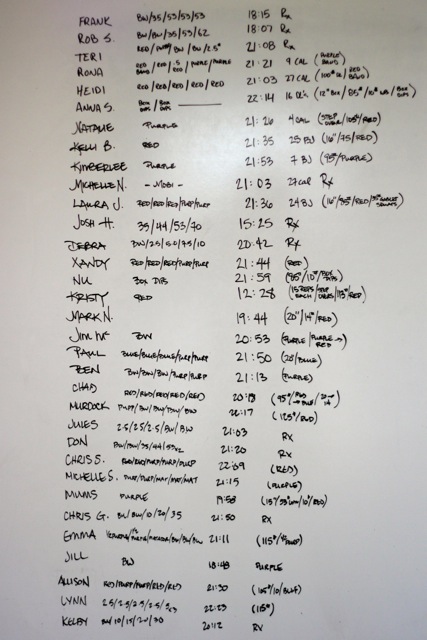 FRANK BW/35/53/53/53 18:15 Rx
ROB S. BW/BW/35/53/62 18:07 Rx
TERI RED/PURP/BW/BW/2.5# 21:08 Rx
RONA RED/RED/.5/PURPLE/PURPLE 21:21 9 CAL (PURPLE BAND)
HEIDI RED/RED/RED/RED/RED 21:03 27 CAL (100# DL/RED BAND)
ANNA S. BOX DIPS/BOX DIPS 22:14 16 DL'S (12" BOX/85#/10# WB/BOX DIPS)
NATALIE PURPLE 21:26 4 CAL (STEP OVER/105#/RED)
KELLI B. RED 21:35 25 BJ (16"/75/RED)
KIMBERLEE PURPLE 21:53 7 BJ (95#/PURPLE)
MICHELLE N. - MOBI - 21:03 27 CAL Rx
LAURA J. RED/RED/RED/PURP/PURP 21:36 24 BJ (16"/85#/RED)
JOSH H. 35/44/53/70 15:25 Rx
DEBRA BW/2.5/5.0/7.5/10 20:42 Rx
XANDY RED/RED/RED/PURP/PURP 21:44 (RED)
NU BOX DIPS 21:59 (85#/10#/BOX DIPS)
KRISTY RED 12:28 (15 REPS EACH/STEP OVERS/113#/RED)
MARK N. 19:44 (20"/14#/RED)
JIM Mc BW 20:53 (PURPLE/PURPLE → RED)
PAUL BLUE/BLUE/BLUE/PURP/PURP 21:50 (25/BLUE)
BEN BW/BW/BW/PURP/PURP 21:13 (PURPLE)
CHAD RED/RED/RED/RED/RED 20:13
MURDOCK PURP/BW/BW/BW/BW 22:17 (125#/RED)
JULES 2.5/2.5/2.5/BW/BW 21:03 Rx
DON BW/BW/35/44/53 21:20 Rx
CHRIS S. RED/RED/PURP/PURP/PURP 22:09 (RED)
MICHELLE S. PURP/PURP/MAT/MAT/MAT 21:15 (PURPLE)
MUMS PURPLE 19:58
CHRIS G. BW/BW/10/20/35 21:50 RX
EMMA 21:11 (115#/PURP)
JILL BW 18:48 PURPLE
ALLISON RED/PURP/PURP/RED/RED 21:30 (105#/10/BLUE)
LYNN 2.5/2.5/2.5/2.5/5 22:23 (115#)
KELBY BW/10/15/20/30 20:12 RX